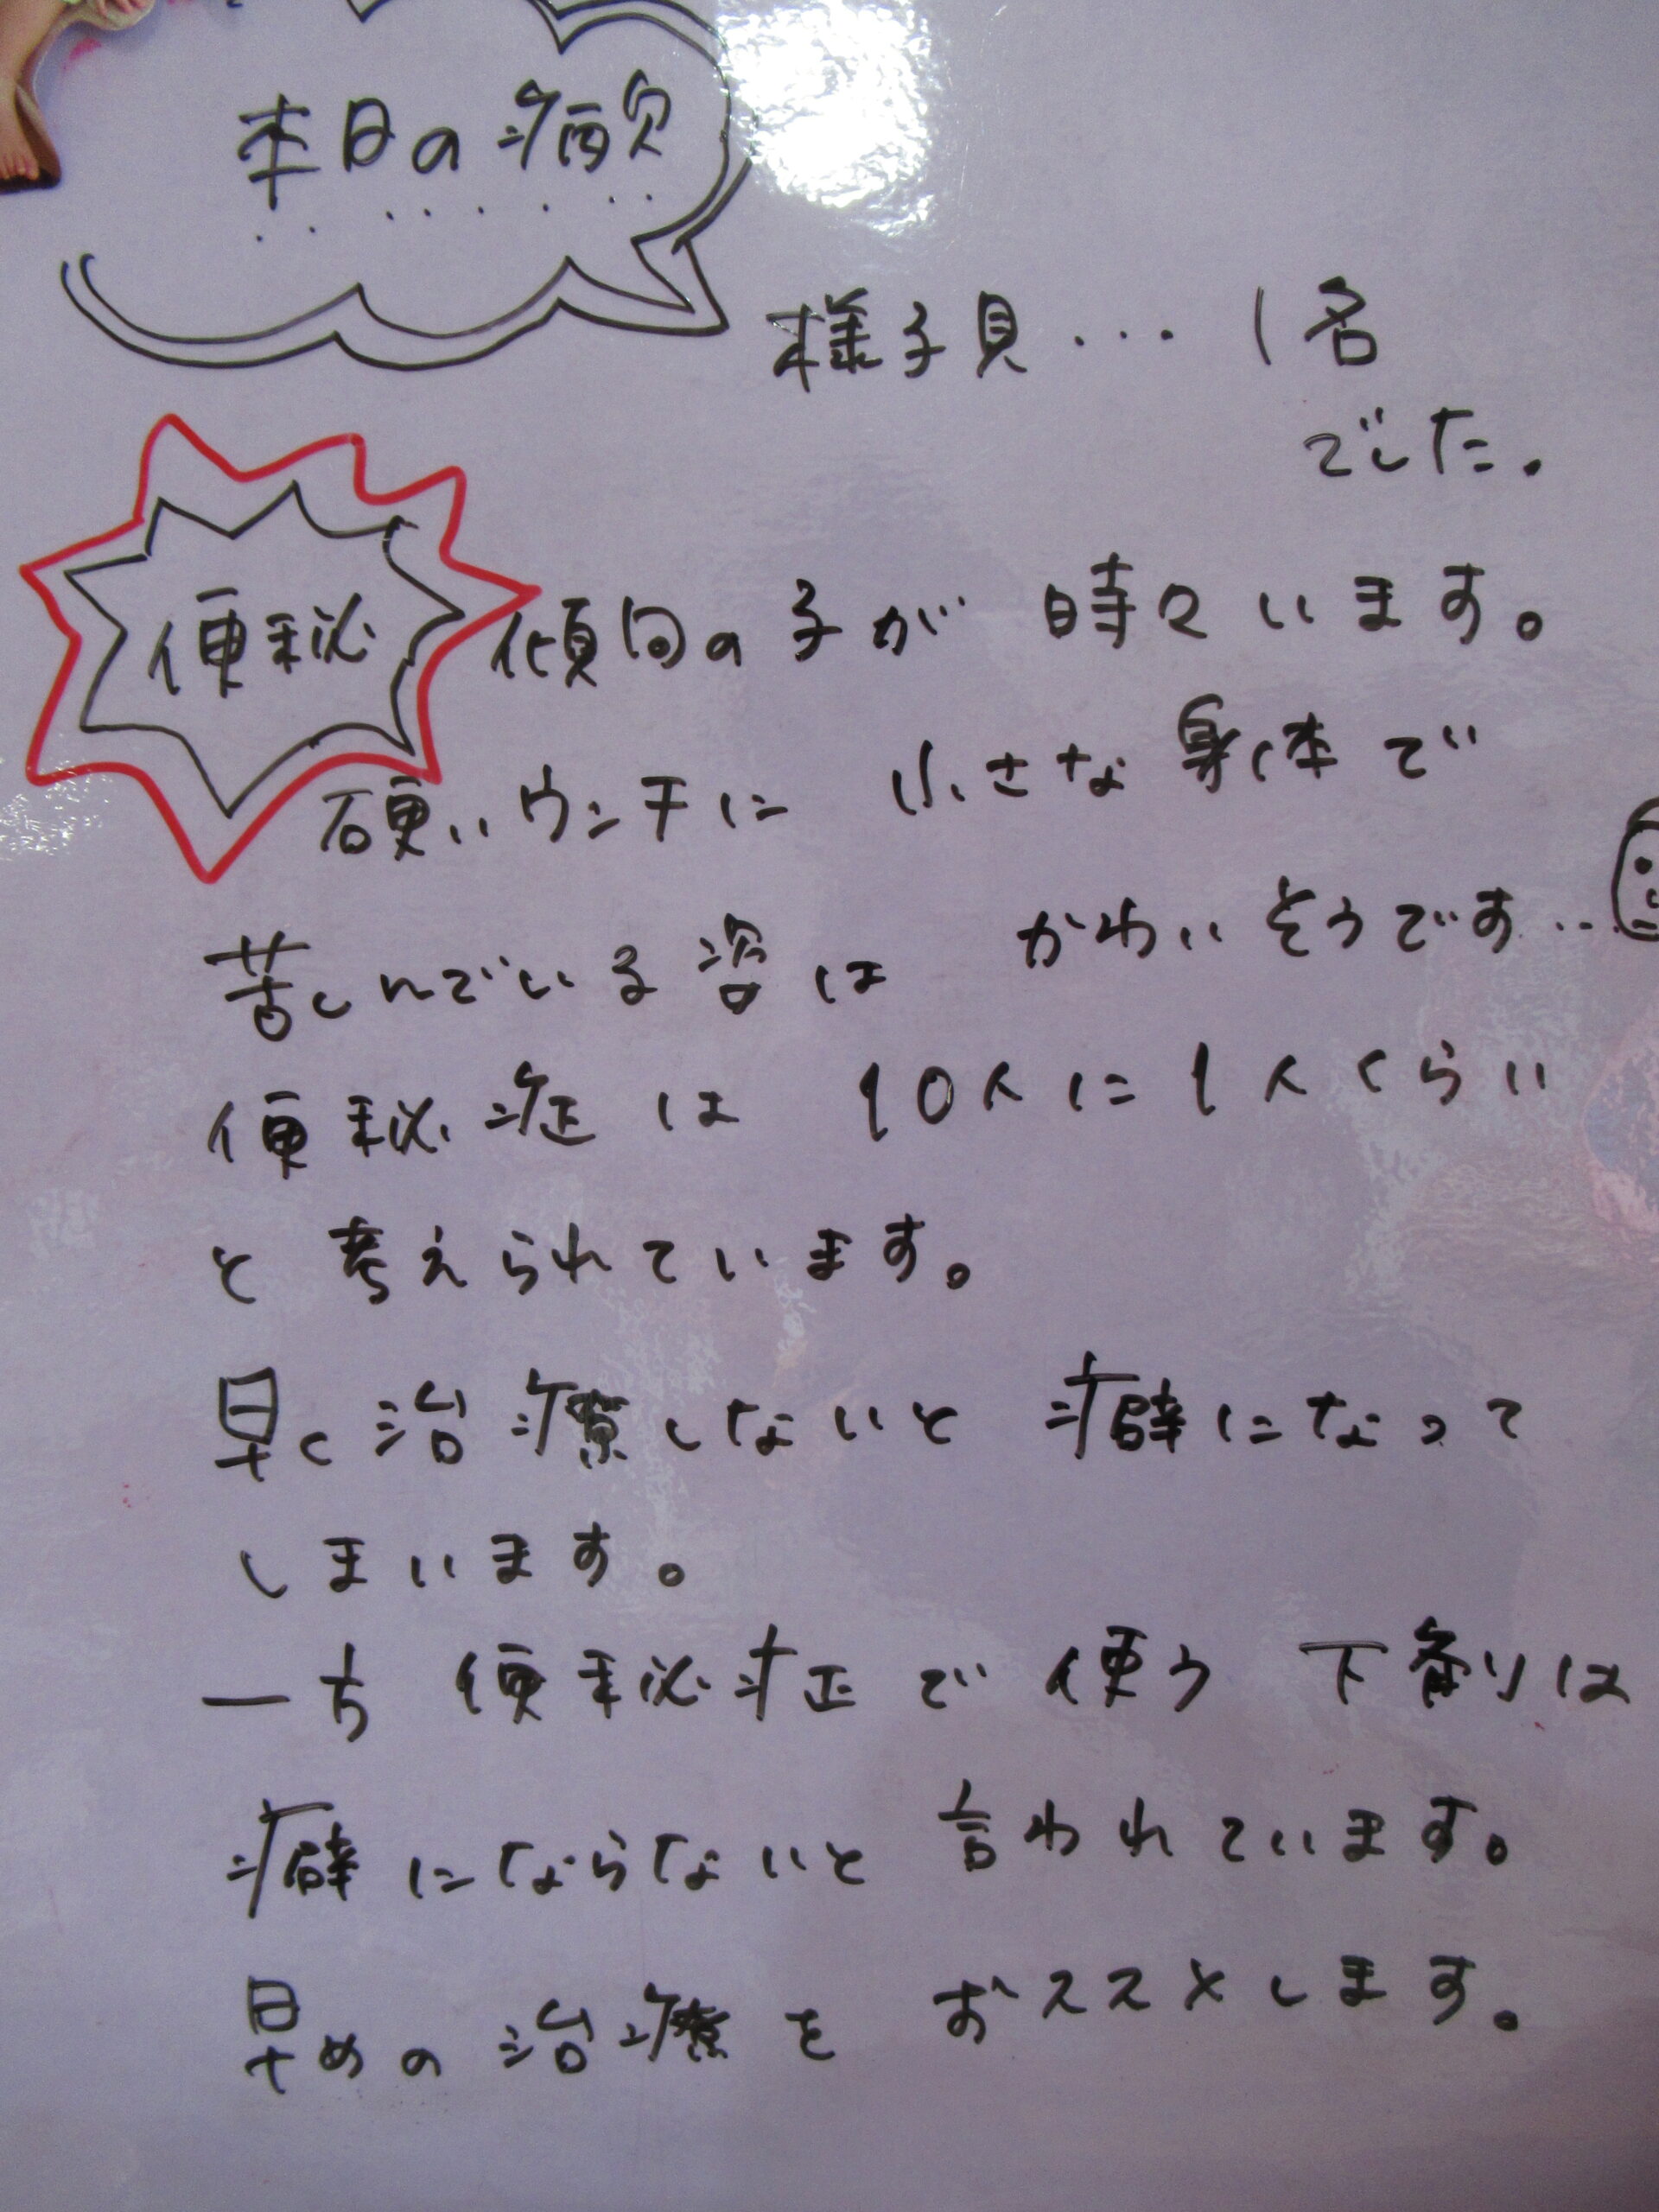 本日の病欠
様子見・・・1名
でした。
便秘傾向の子が 時々います。
硬いウンチに 小さな身体で
苦しんでいる姿は かわいそうです・・・
便秘症は 10人に1人くらい
と考えられています。
早く治療しないと 癖になって
しまいます。
一方 便秘症で使う 下剤は
癖にならないと 言われています。
早めの治療を おススメします。